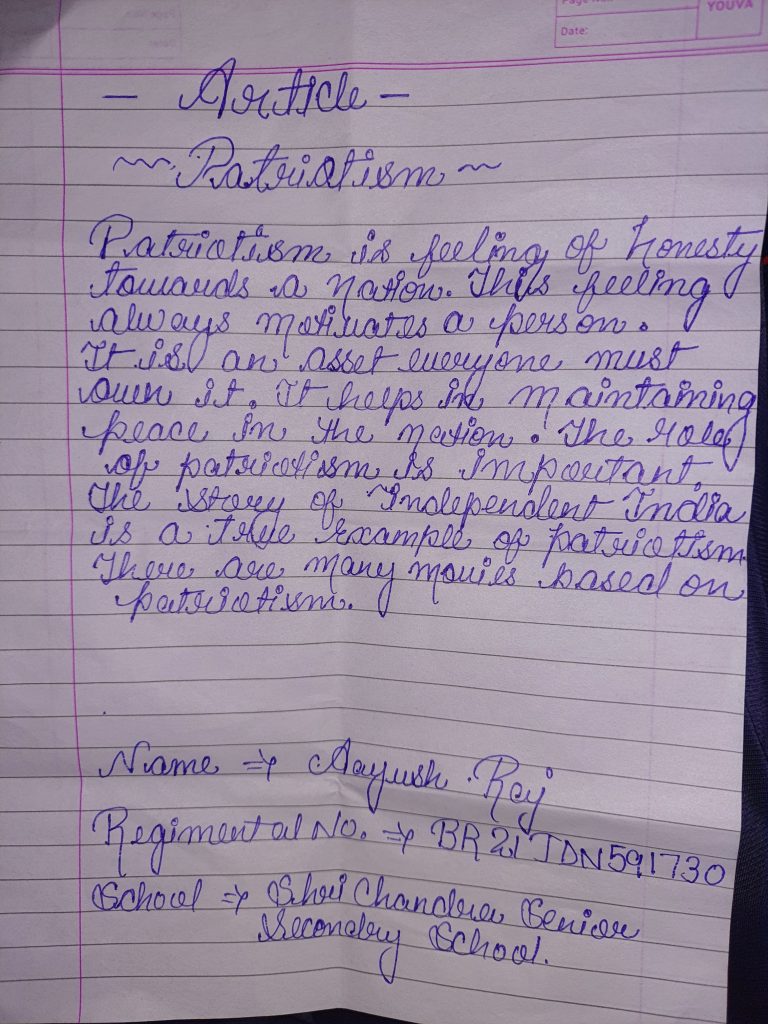 YOUVA
Date:
- Article -
~ Patriotism ~
Patriotism is feeling of honesty
towards a nation. This feeling
always motivates a person.
It is an asset everyone must
own it. It helps in maintaining
peace in the nation. The role
of patriotism is important.
The story of Independent India
is a true example of patriotism
There are many movies based on
patriotism.
Name ⇒ Aayush Raj
Regimental No. ⇒ BR21JDN591730
School ⇒ Shri Chandra Senior
Secondry School.